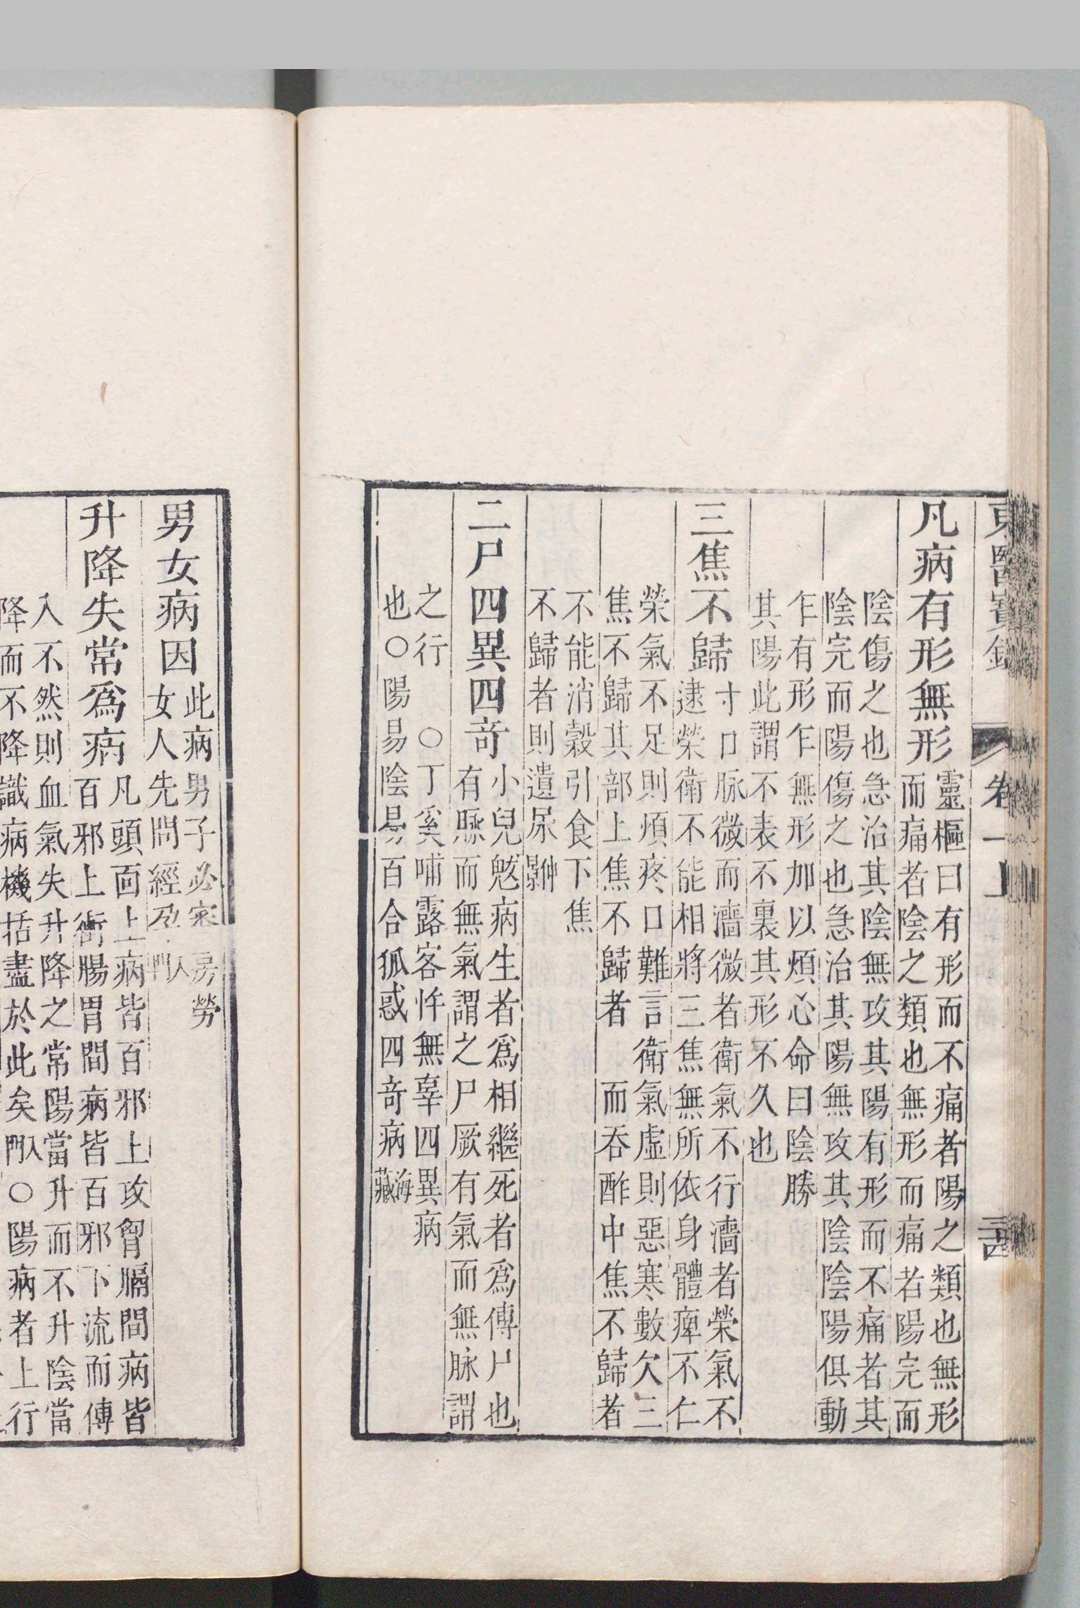 東醫寶鑑 卷一上 二十四
凡病有形無形
靈樞曰有形而不痛者陽之類也無形
而痛者陰之類也無形而痛者陽完而
陰傷之也急治其陰無攻其陽有形而不痛者其
陰完而陽傷之也急治其陽無攻其陰陰陽俱動
乍有形乍無形加以煩心命曰陰勝
其陽此謂不表不裏其形不久也
三焦不歸
寸口脉微而濇微者衛氣不行濇者榮氣不
逮榮衛不能相將三焦無所依身體痺不仁
榮氣不足則煩疼口難言衛氣虛則惡寒數欠三
焦不歸其部上焦不歸者 而吞酢中焦不歸者
不能消穀引食下焦
不歸者則遺尿
二尸四異四竒
小兒鬾病生者爲相繼死者爲傳尸也
有脉而無氣謂之尸厥有氣而無脉謂
之行 ○丁奚哺露客忤無辜四異病
也○陽易陰易百合狐惑四竒病
海藏
男女病因
此病男子必審房勞
女人先問經孕
入門
升降失常爲病
凡頭面上病皆百邪上攻胷膈間病皆
百邪上衝腸胃間病皆百邪下流而傳
入不然則血氣失升降之常陽當升而不升陰當
降而不降識病機括盡於此矣
入門
○陽病者上行